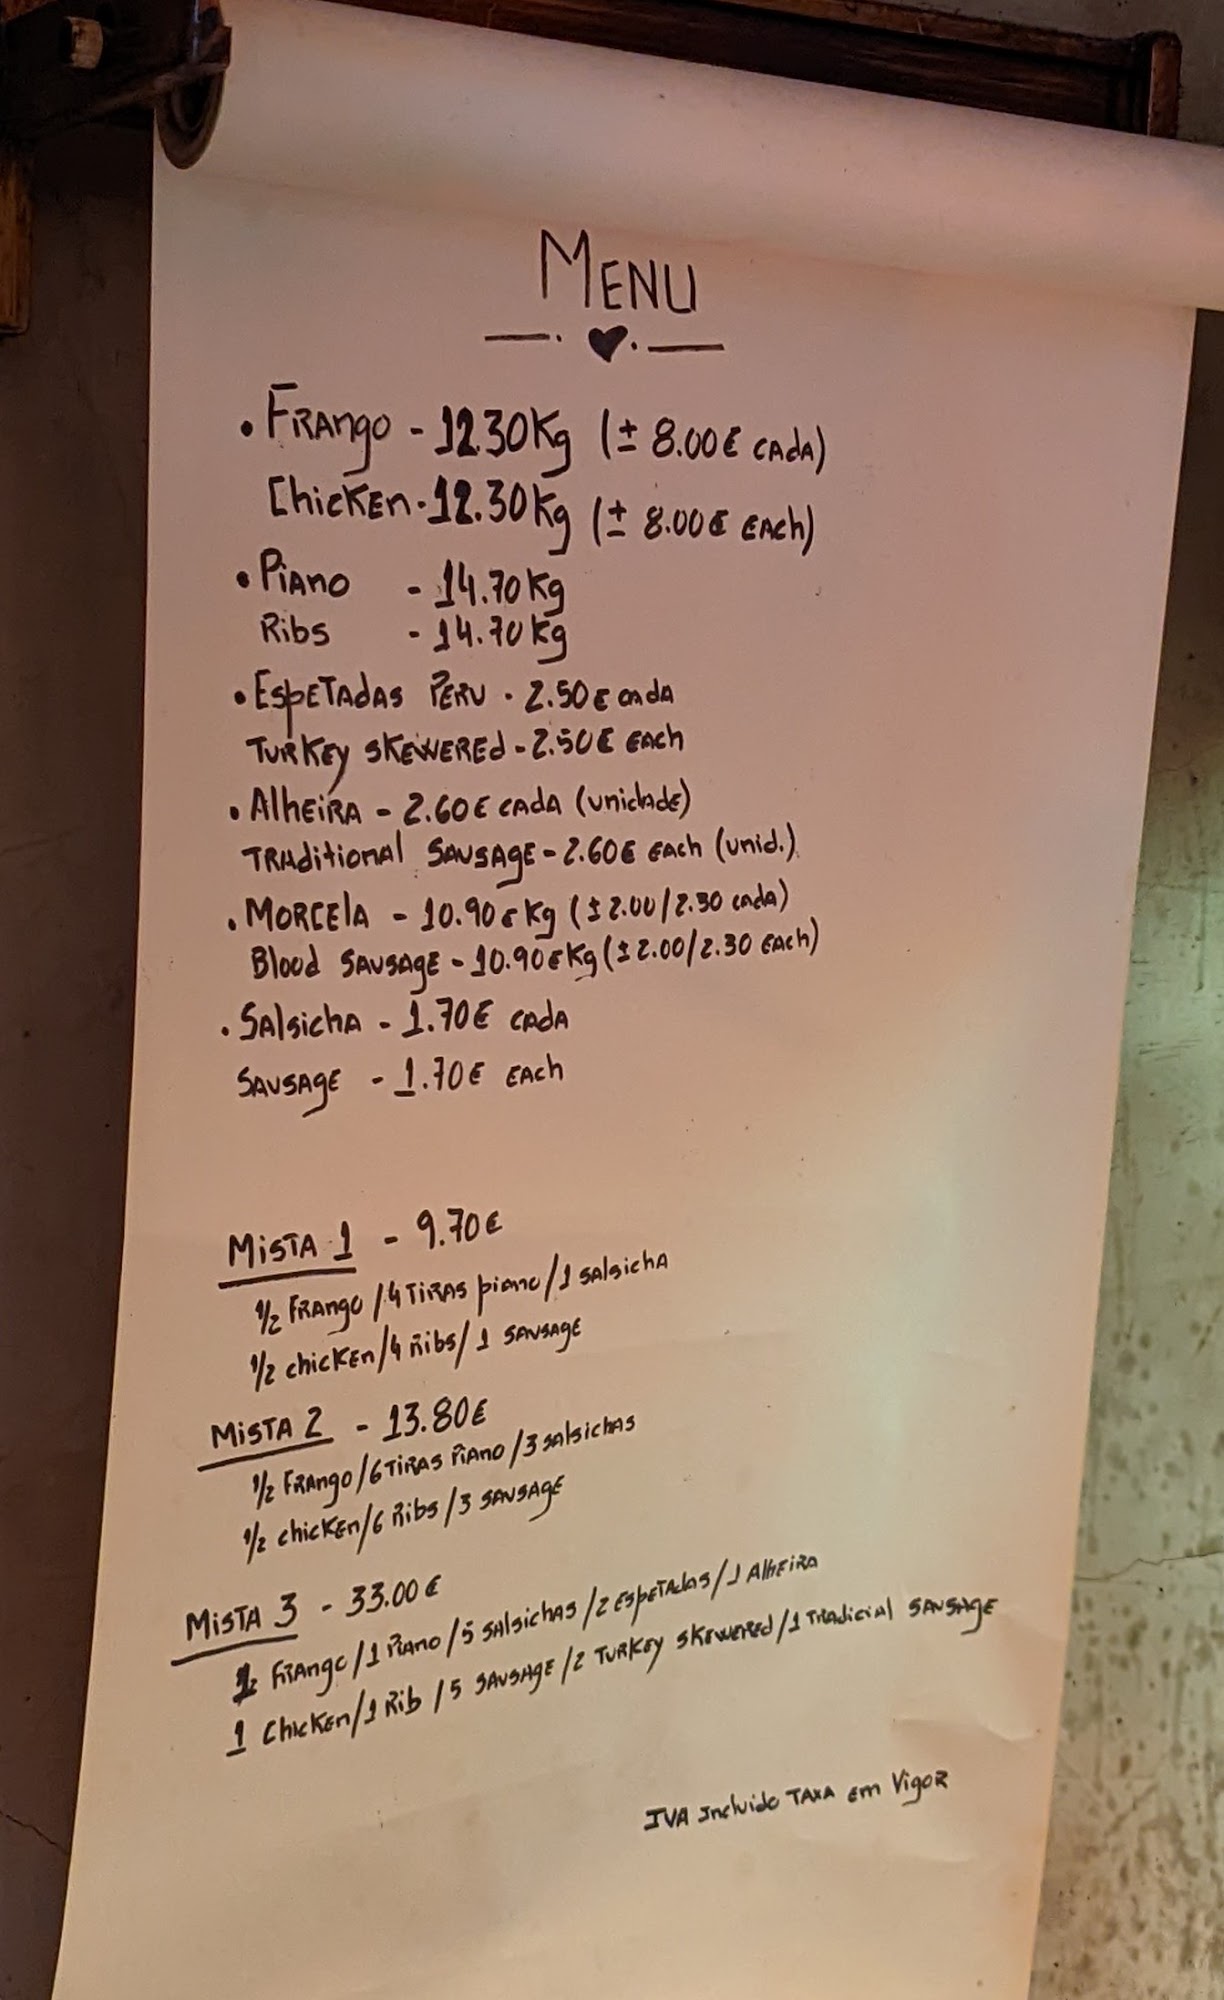 MENU
• FRANGO - 12.30Kg (± 8.00€ CADA)
CHICKEN - 12.30Kg (± 8.00€ EACH)
• PIANO - 14.70Kg
RIBS - 14.70Kg
• ESPETADAS PERU - 2.50€ CADA
TURKEY SKEWERED - 2.50€ EACH
• ALHEIRA - 2.60€ CADA (unidade)
TRADITIONAL SAUSAGE - 2.60€ EACH (unid.)
• MORCELA - 10.90€Kg (± 2.00/2.30 cada)
BLOOD SAUSAGE - 10.90€Kg (± 2.00/2.30 EACH)
• SALSICHA - 1.70€ CADA
SAUSAGE - 1.70€ EACH
MISTA 1 - 9.70€
1/2 FRANGO / 4 TIRAS piano / 1 SALSICHA
1/2 CHICKEN / 4 RIBS / 1 SAUSAGE
MISTA 2 - 13.80€
1/2 FRANGO / 6 TIRAS PIANO / 3 SALSICHAS
1/2 CHICKEN / 6 RIBS / 3 SAUSAGE
MISTA 3 - 33.00€
1 FRANGO / 1 PIANO / 5 SALSICHAS / 2 ESPETADAS / 1 ALHEIRA
1 CHICKEN / 1 RIB / 5 SAUSAGE / 2 TURKEY SKEWERED / 1 TRADICIAL SAUSAGE
IVA Incluido TAXA em Vigor